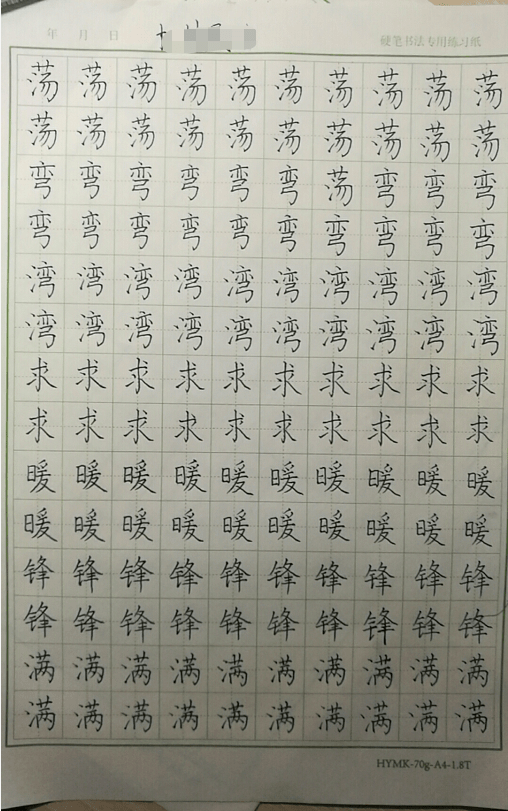 年 月 日
硬笔书法专用练习纸
荡荡荡荡荡荡荡荡荡荡
荡荡荡荡荡荡荡荡荡荡
弯弯弯弯弯弯荡弯弯弯
弯弯弯弯弯弯弯弯弯弯
湾湾湾湾湾湾湾湾湾湾
湾湾湾湾湾湾湾湾湾湾
求求求求求求求求求求
求求求求求求求求求求
暖暖暖暖暖暖暖暖暖暖
暖暖暖暖暖暖暖暖暖暖
锋锋锋锋锋锋锋锋锋锋
锋锋锋锋锋锋锋锋锋锋
满满满满满满满满满满
满满满满满满满满满满
HYMK-70g-A4-1.8T